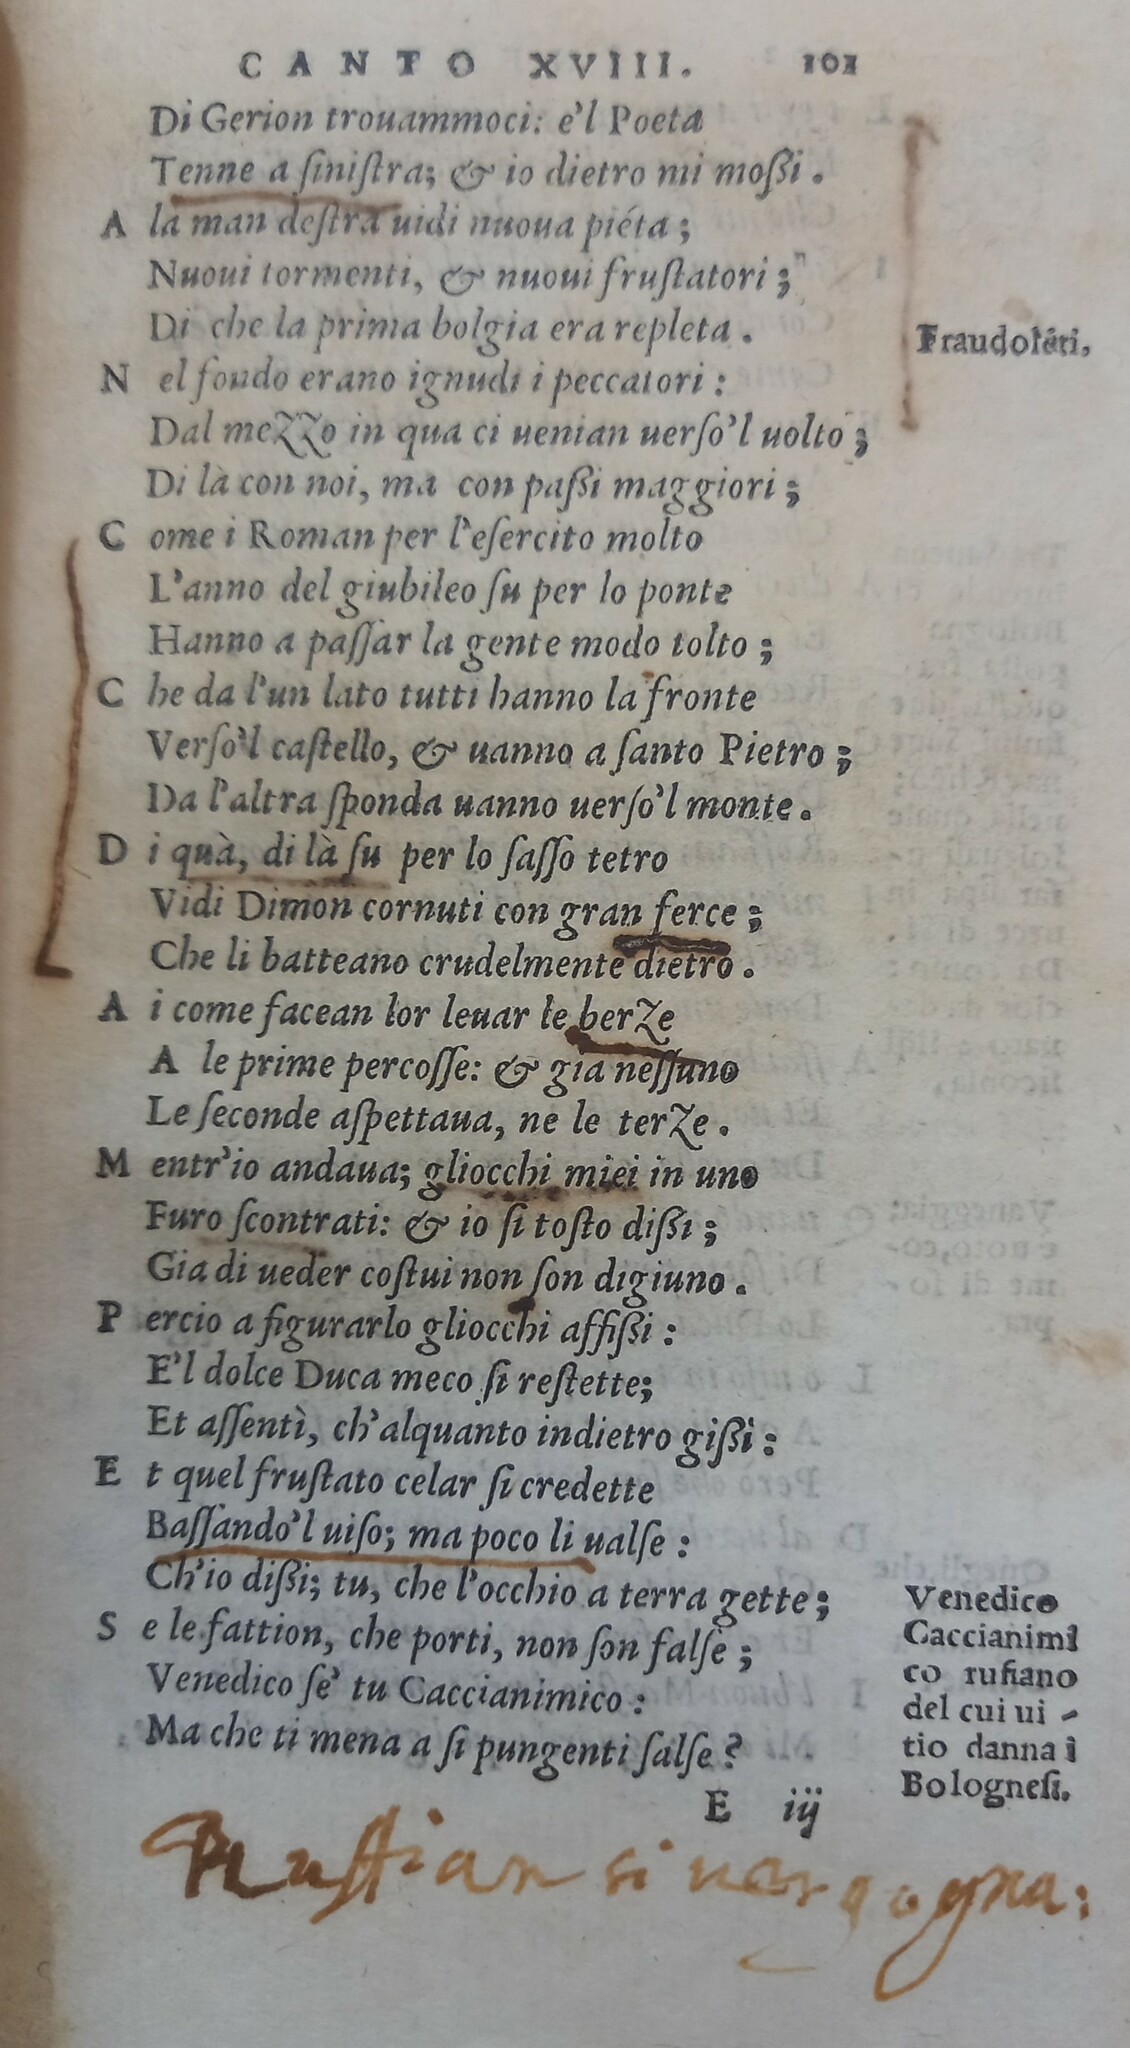 CANTO XVIII. 101
Di Gerion trouammoci: e'l Poeta
Tenne a ſiniſtra; & io dietro mi moßi.
A la man deſtra uidi nuoua piéta;
Nuoui tormenti, & nuoui fruſtatori;
Di che la prima bolgia era repleta.
Fraudolẽti,
N el fondo erano ignudi i peccatori:
Dal mezzo in qua ci uenian uerſo'l uolto;
Di là con noi, ma con paßi maggiori;
C ome i Roman per l'eſercito molto
L'anno del giubileo ſu per lo ponte
Hanno a paſſar la gente modo tolto;
C he da l'un lato tutti hanno la fronte
Verſo'l caſtello, & uanno a ſanto Pietro;
Da l'altra ſponda uanno uerſo'l monte.
D i quà, di là ſu per lo ſaſſo tetro
Vidi Dimon cornuti con gran ferce;
Che li batteano crudelmente dietro.
A i come facean lor leuar le berze
A le prime percoſſe: & gia neſſuno
Le ſeconde aſpettaua, ne le terze.
M entr'io andaua; gliocchi miei in uno
Furo ſcontrati: & io ſi toſto dißi;
Gia di ueder coſtui non ſon digiuno.
P ercio a figurarlo gliocchi affißi:
E'l dolce Duca meco ſi reſtette;
Et aſſentì, ch'alquanto indietro gißi:
E t quel fruſtato celar ſi credette
Baſſando'l uiſo; ma poco li ualſe:
Ch'io dißi; tu, che l'occhio a terra gette;
S e le fattion, che porti, non ſon falſe;
Venedico ſe' tu Caccianimico:
Ma che ti mena a ſi pungenti ſalſe?
Venedico
Caccianimi
co rufiano
del cui ui-
tio danna i
Bologneſi.
E iij
Ruffian si uergogna: